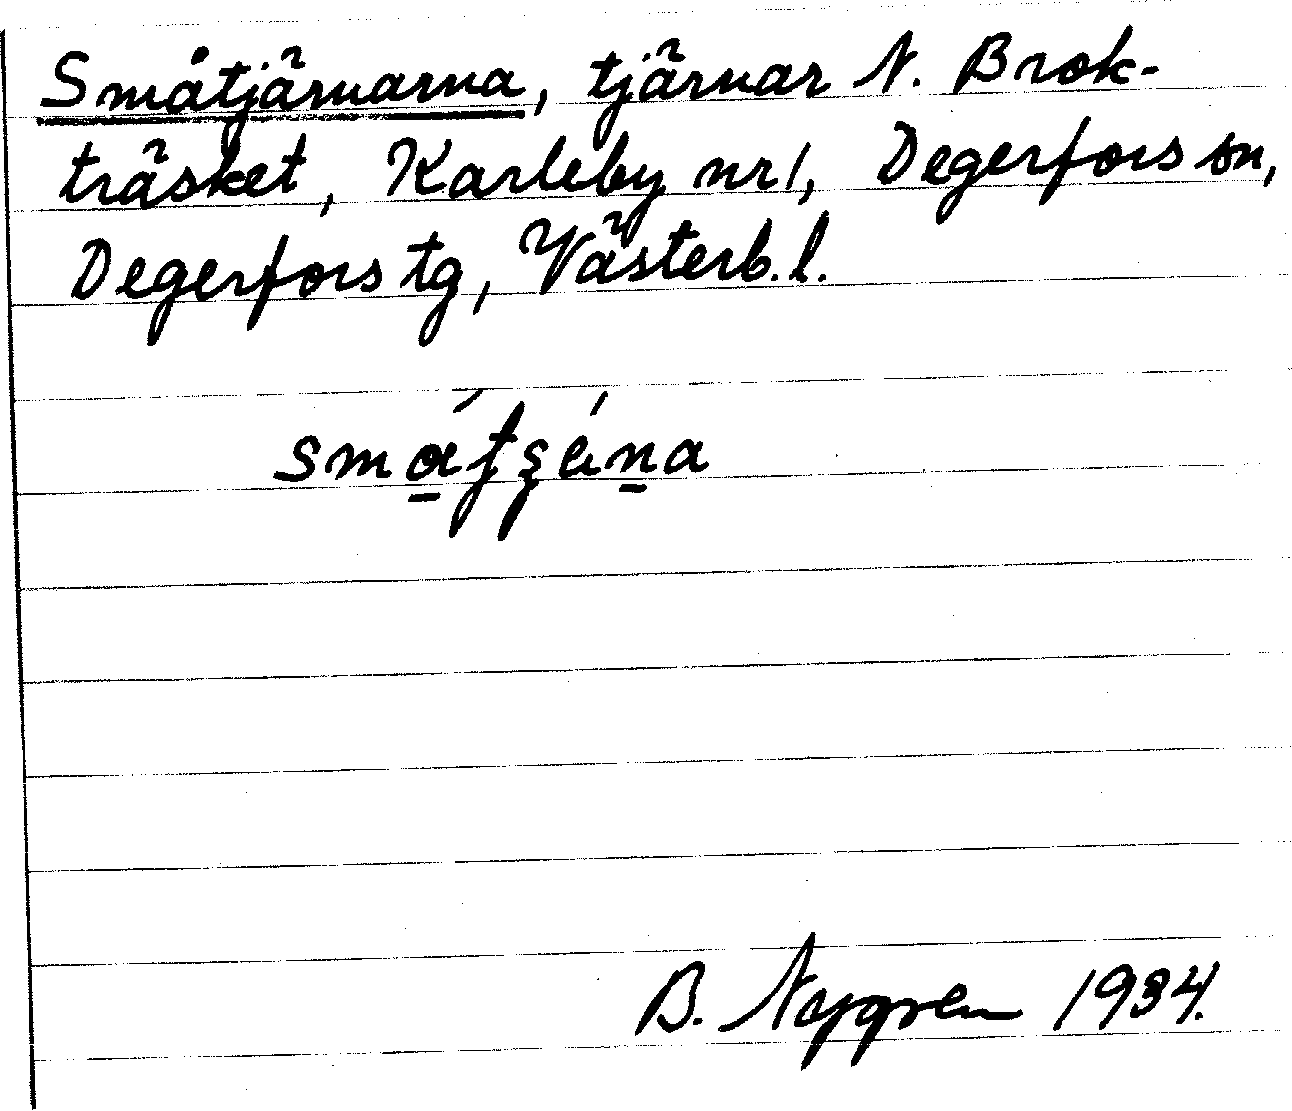 Småtjärnarna, tjärnar N. Brok-
träsket, Karleby nr 1, Degerfors sn,
Degerfors tg, Västerb. l.
B. Nygren 1934.